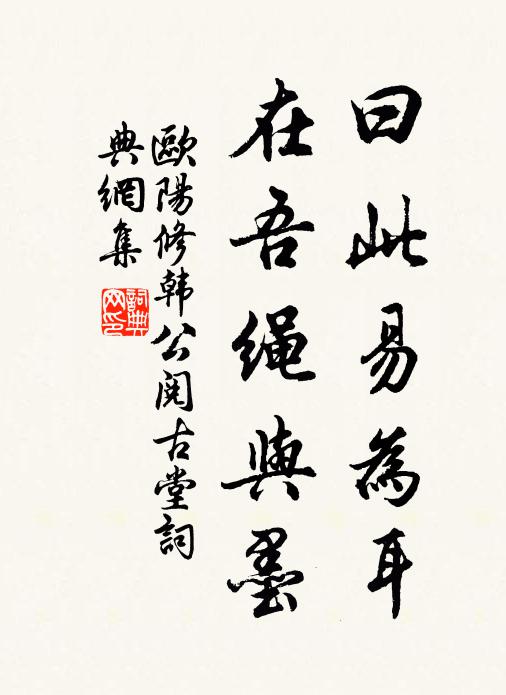 曰此易為耳
在吾绳與墨
歐陽修韩公阅古堂詞
典網集
詞典网印